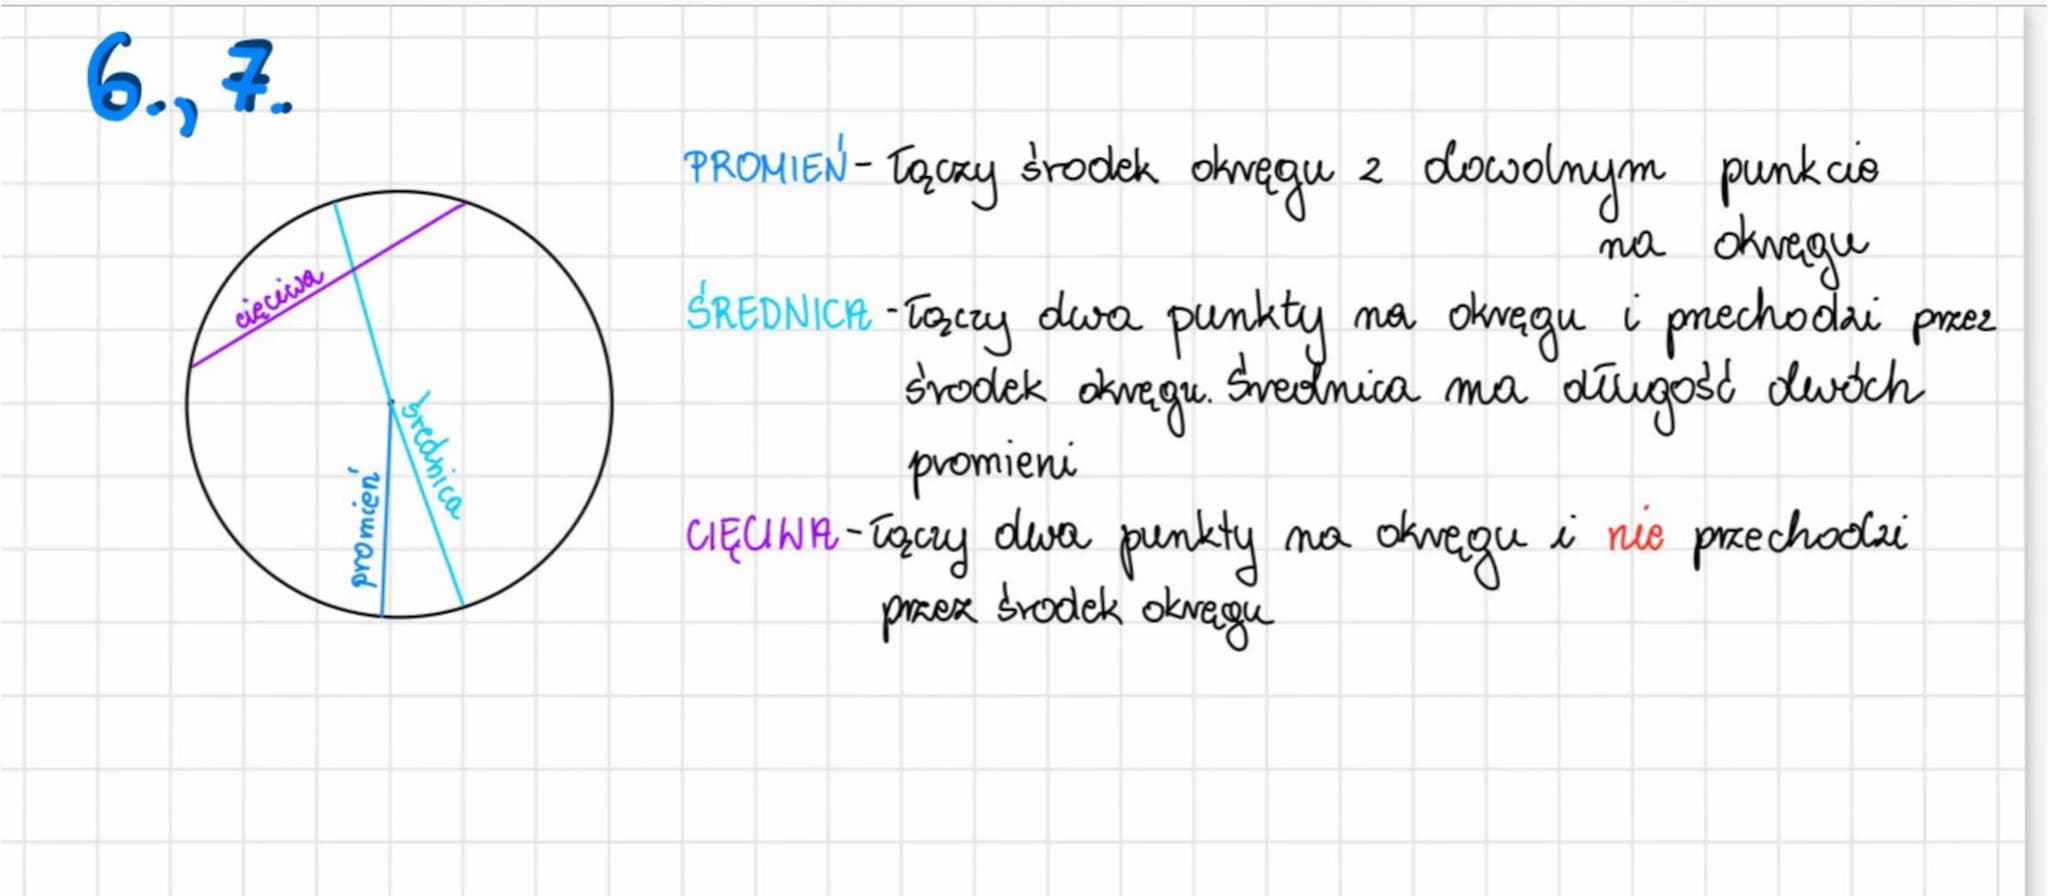 6., 7.
PROMIEŃ - łączy środek okręgu z dowolnym punkcie
na okręgu
ŚREDNICA - łączy dwa punkty na okręgu i przechodzi przez
środek okręgu. Średnica ma długość dwóch
promieni
CIĘCIWA - łączy dwa punkty na okręgu i nie przechodzi
przez środek okręgu
cięciwa
średnica
promień